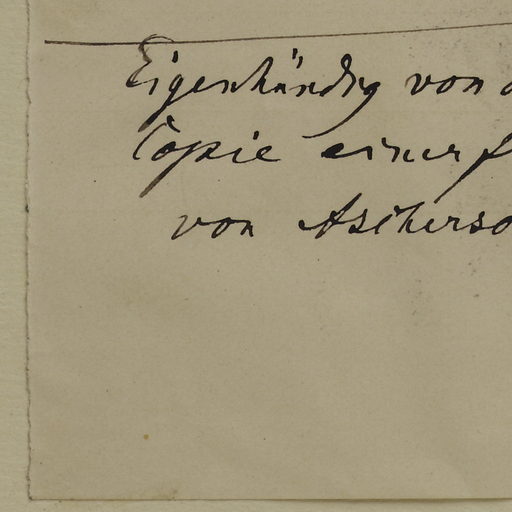 Eigenhändig von
Copie einer
von Ascherso